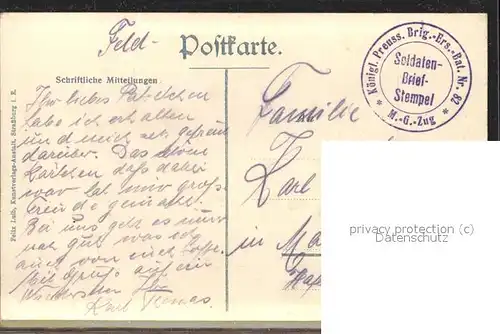 Feld-
Postkarte.
Königl. Preuss. Brig.-Ers.-Bat. Nr. 82
Soldaten-
Brief-
Stempel
* M.-G.-Zug *
Schriftliche Mitteilungen
Ihr liebes
habe ich erhalten
und mich sehr gefreut
darüber. Das schöne
Kärtchen daß dabei
war hat mir große
Freude gemacht.
Bei uns geht es immer
gut was ich
auch von euch hoffe.
Mit Gruß auf ein
Karl
Familie
Karl
in
Felix Luib, Kunstverlags-Anstalt, Straßburg i. E.
privacy protection (c)